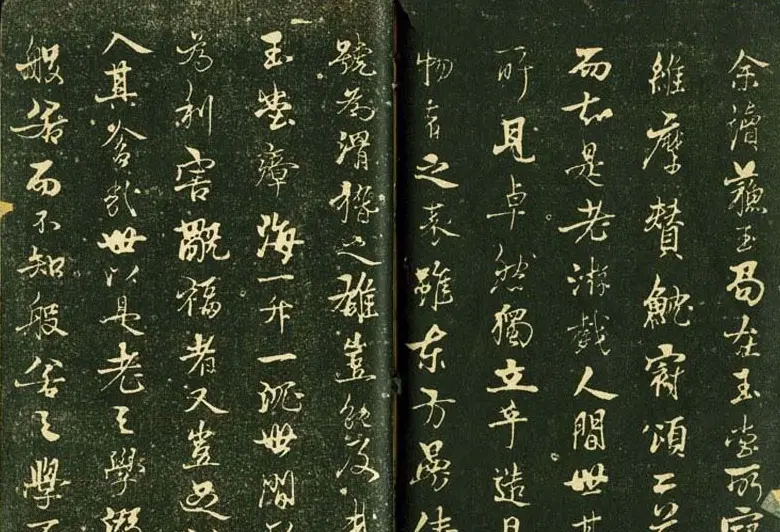 余读苏玉局在玉堂所写
維摩贊魷窗頌二
而知是老游戲人間世其
所見卓然獨立乎造
物者之表雖東方曼倩
號為滑稽之雄豈能及
玉堂瘴海一升一沉世間
為利害觀福者又豈
入其舍哉世以是老之學
般若而不知般若之學